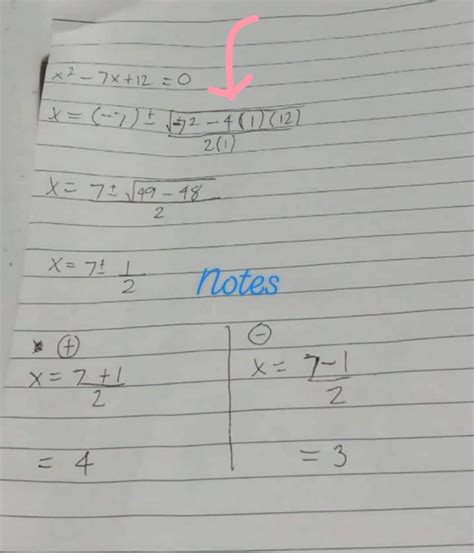 x² - 7x + 12 = 0
x = (--7) ± √-7² - 4(1)(12) / 2(1)
x = 7 ± √49 - 48 / 2
x = 7 ± 1 / 2
Notes
(+)
x = 7 + 1 / 2
= 4
(-)
x = 7 - 1 / 2
= 3